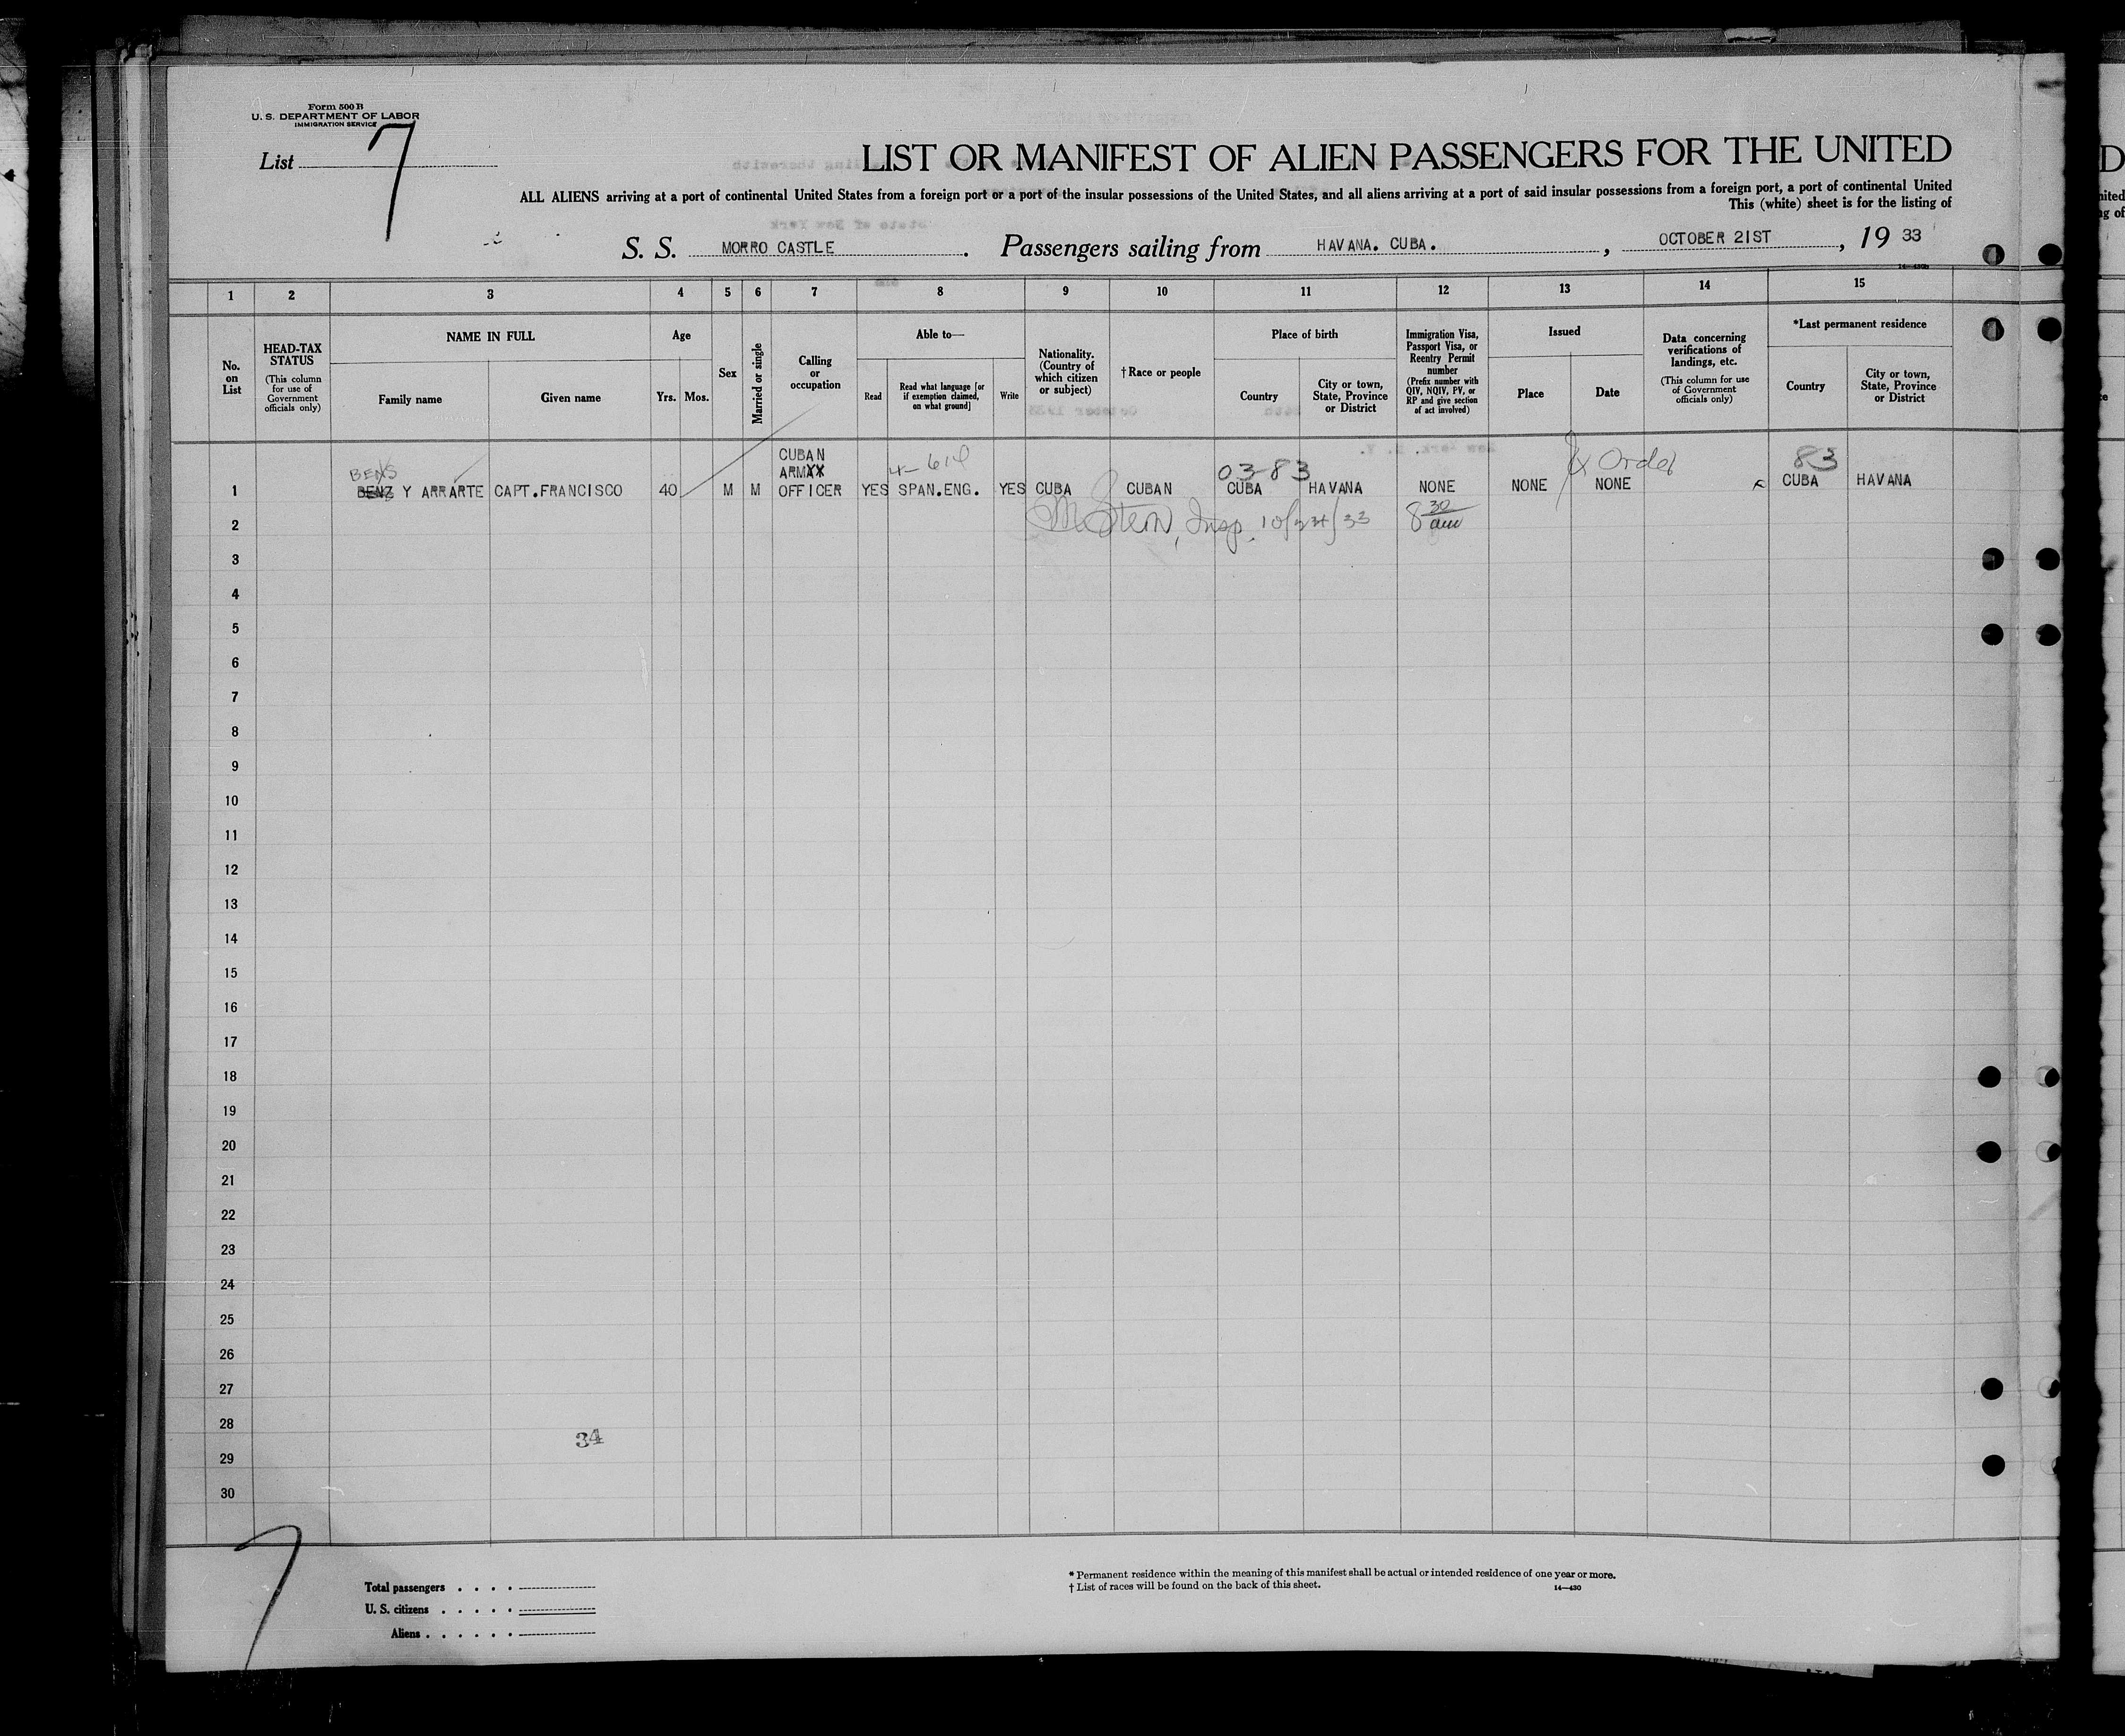 Form 500 B
U. S. DEPARTMENT OF LABOR
IMMIGRATION SERVICE
List 7
LIST OR MANIFEST OF ALIEN PASSENGERS FOR THE UNITED
ALL ALIENS arriving at a port of continental United States from a foreign port or a port of the insular possessions of the United States, and all aliens arriving at a port of said insular possessions from a foreign port, a port of continental United
This (white) sheet is for the listing of
S. S. MORRO CASTLE. Passengers sailing from HAVANA. CUBA. , OCTOBER 21ST , 19 33
1 2 3 4 5 6 7 8 9 10 11 12 13 14 15
No. on List
HEAD-TAX STATUS
(This column for use of Government officials only)
NAME IN FULL
Family name
Given name
Age
Yrs. Mos.
Sex
Married or single
Calling or occupation
Able to—
Read
Read what language [or if exemption claimed, on what ground]
Write
Nationality. (Country of which citizen or subject)
†Race or people
Place of birth
Country
City or town, State, Province or District
Immigration Visa, Passport Visa, or Reentry Permit number
(Prefix number with QIV, NQIV, PV, or RP and give section of act involved)
Issued
Place
Date
Data concerning verifications of landings, etc.
(This column for use of Government officials only)
*Last permanent residence
Country
City or town, State, Province or District
BENS
CUBAN
ARMXX
4-614
03-83
Order
83
1 BENZ Y ARRARTE CAPT.FRANCISCO 40 M M OFFICER YES SPAN.ENG. YES CUBA CUBAN CUBA HAVANA NONE NONE NONE CUBA HAVANA
2 Stern, Insp. 10/24/33 8 30 am
3
4
5
6
7
8
9
10
11
12
13
14
15
16
17
18
19
20
21
22
23
24
25
26
27
28
34
29
30
7
Total passengers . . . .
U. S. citizens . . . . .
Aliens . . . . . .
* Permanent residence within the meaning of this manifest shall be actual or intended residence of one year or more.
† List of races will be found on the back of this sheet.
14—430